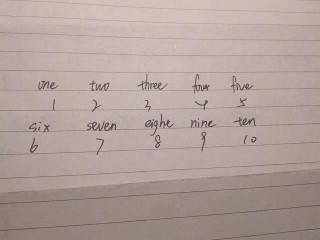 one two three four five
1 2 3 4 5
six seven eighe nine ten
6 7 8 9 10